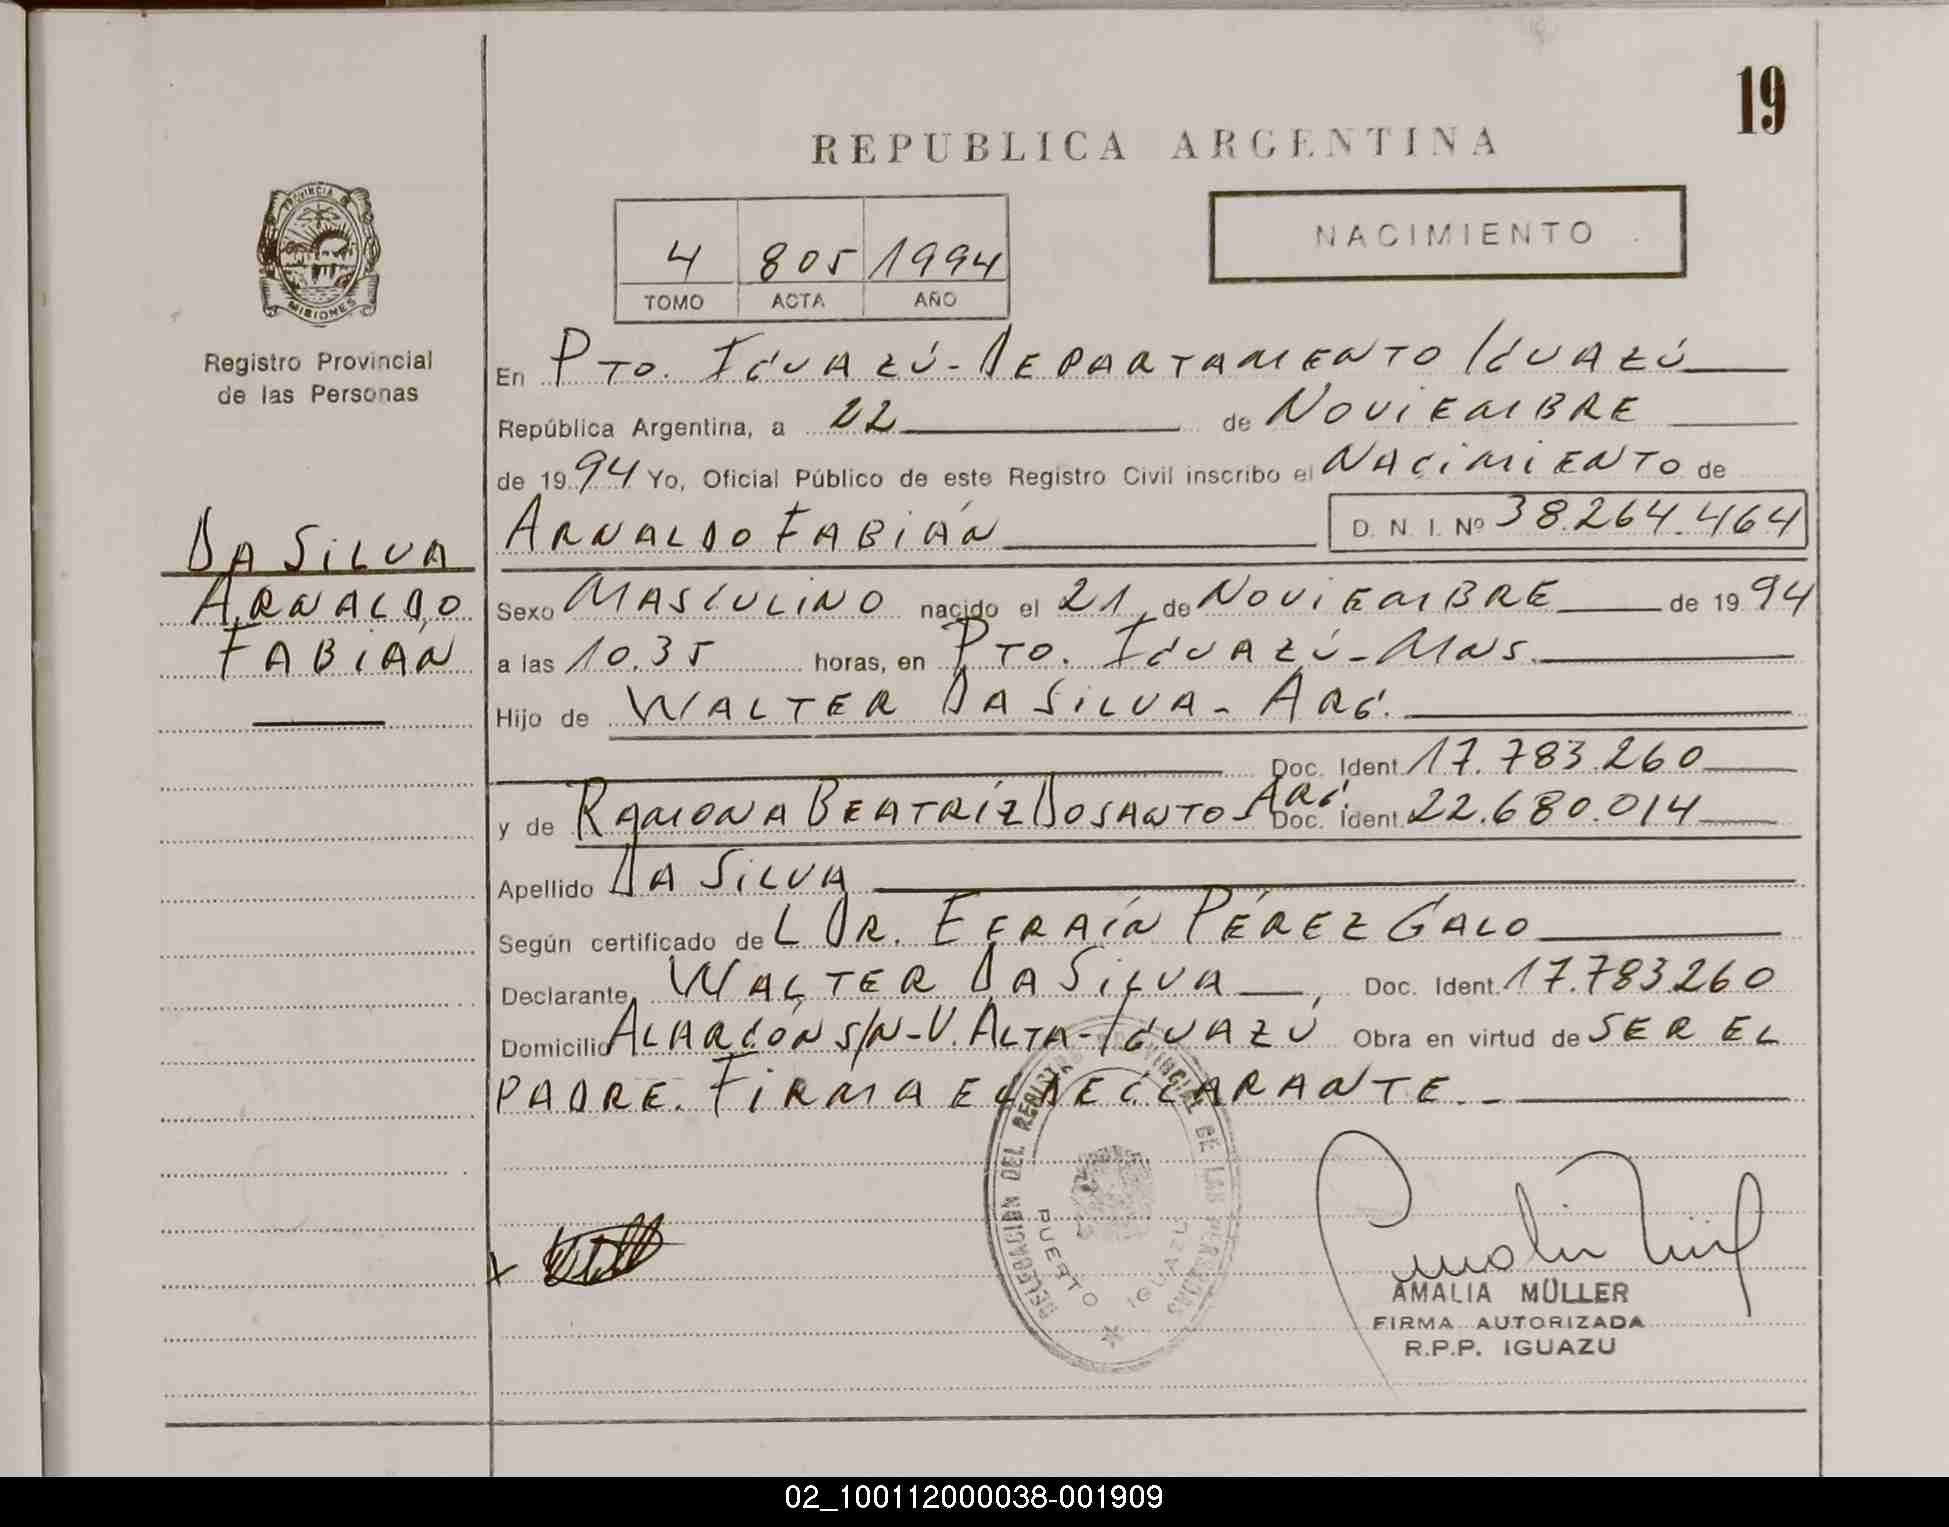 19
REPUBLICA ARGENTINA
PROVINCIA DE
MISIONES
Registro Provincial
de las Personas
4 805 1994
TOMO ACTA AÑO
NACIMIENTO
En PTO. IGUAZÚ - DEPARTAMENTO IGUAZÚ
República Argentina, a 22 de NOVIEMBRE
de 1994 Yo, Oficial Público de este Registro Civil inscribo el NACIMIENTO de
ARNALDO FABIÁN D. N. I. Nº 38.264.464
DA SILVA
ARNALDO
FABIÁN
Sexo MASCULINO nacido el 21 de NOVIEMBRE de 1994
a las 10.35 horas, en PTO. IGUAZÚ - MNS.
Hijo de WALTER DA SILVA - ARG.
Doc. Ident. 17.783.260
y de RAMONA BEATRÍZ DOSANTOS ARG. Doc. Ident. 22.680.014
Apellido DA SILVA
Según certificado de L DR. EFRAÍN PÉREZ GALO
Declarante WALTER DA SILVA, Doc. Ident. 17.783.260
Domicilio ALARCÓN S/N - V. ALTA - IGUAZÚ Obra en virtud de SER EL
PADRE. FIRMA EL DECLARANTE. -
DELEGACION DEL REGISTRO PROVINCIAL DE LAS PERSONAS
PUERTO IGUAZU
AMALIA MÜLLER
FIRMA AUTORIZADA
R.P.P. IGUAZU
02_100112000038-001909